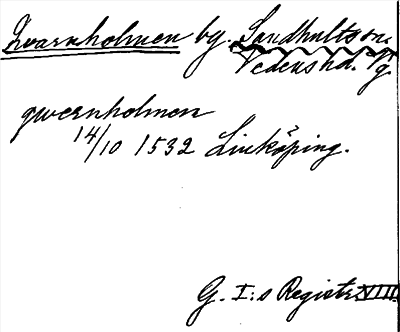 Kvarnholmen by. Sandhults sn.
Vedens hd. Vg
qwernholmen
14/10 1532 Linköping.
G. I:s Registr. VIII